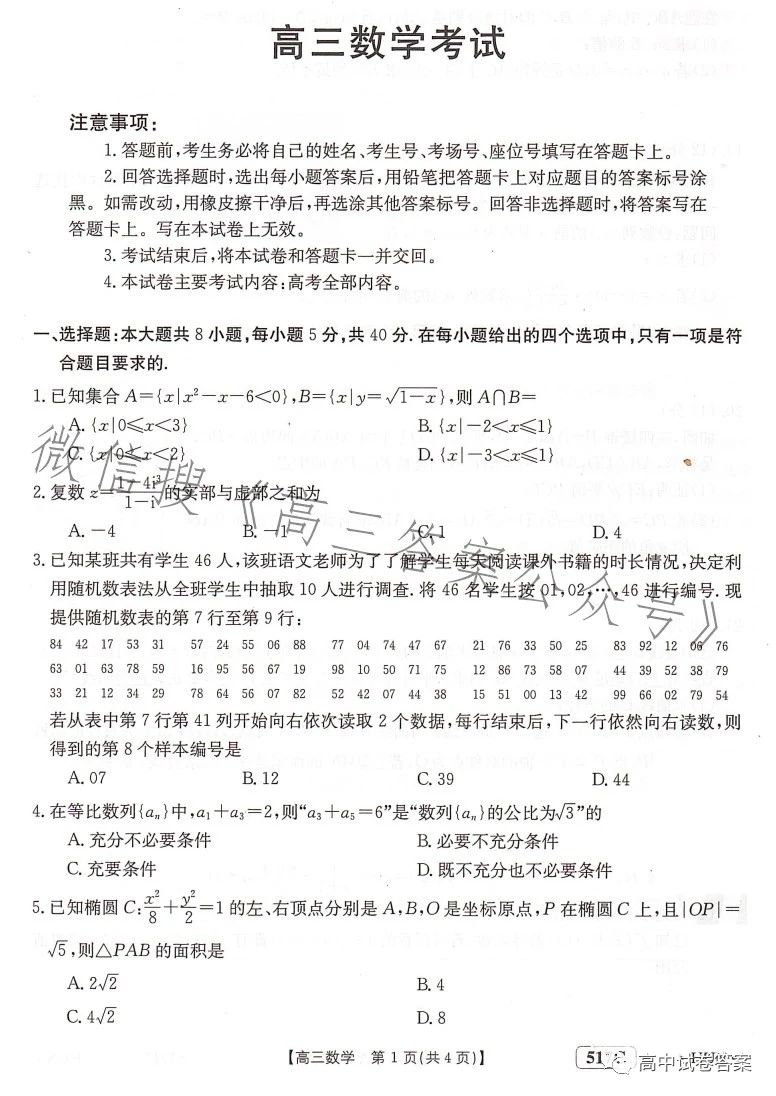 高三数学考试
注意事项：
1.答题前,考生务必将自己的姓名、考生号、考场号、座位号填写在答题卡上。
2.回答选择题时,选出每小题答案后,用铅笔把答题卡上对应题目的答案标号涂
黑。如需改动,用橡皮擦干净后,再选涂其他答案标号。回答非选择题时,将答案写在
答题卡上。写在本试卷上无效。
3.考试结束后,将本试卷和答题卡一并交回。
4.本试卷主要考试内容:高考全部内容。
一、选择题:本大题共8小题,每小题5分,共40分.在每小题给出的四个选项中,只有一项是符
合题目要求的.
1.已知集合A={x|x²-x-6<0},B={x|y=√(1-x)},则A∩B=
A.{x|0≤x<3} B.{x|-2<x≤1}
C.{x|0≤x<2} D.{x|-3<x≤1}
2.复数z=(1-4i³)/(1-i)的实部与虚部之和为
A.-4 B.-1 C.1 D.4
3.已知某班共有学生46人,该班语文老师为了了解学生每天阅读课外书籍的时长情况,决定利
用随机数表法从全班学生中抽取10人进行调查.将46名学生按01,02,…,46进行编号.现
提供随机数表的第7行至第9行:
84 42 17 53 31 57 24 55 06 88 77 04 74 47 67 21 76 33 50 25 83 92 12 06 76
63 01 63 78 59 16 95 56 67 19 98 10 50 71 75 12 86 73 58 07 44 39 52 38 79
33 21 12 34 29 78 64 56 07 82 52 42 07 44 38 15 51 00 13 42 99 66 02 79 54
若从表中第7行第41列开始向右依次读取2个数据,每行结束后,下一行依然向右读数,则
得到的第8个样本编号是
A.07 B.12 C.39 D.44
4.在等比数列{aₙ}中,a₁+a₃=2,则“a₃+a₅=6”是“数列{aₙ}的公比为√3”的
A.充分不必要条件 B.必要不充分条件
C.充要条件 D.既不充分也不必要条件
5.已知椭圆C:x²/8+y²/2=1的左、右顶点分别是A,B,O是坐标原点,P在椭圆C上,且|OP|=
√5,则△PAB的面积是
A.2√2 B.4
C.4√2 D.8
【高三数学 第1页(共4页)】
微信搜《高三答案公众号》
高中试卷答案